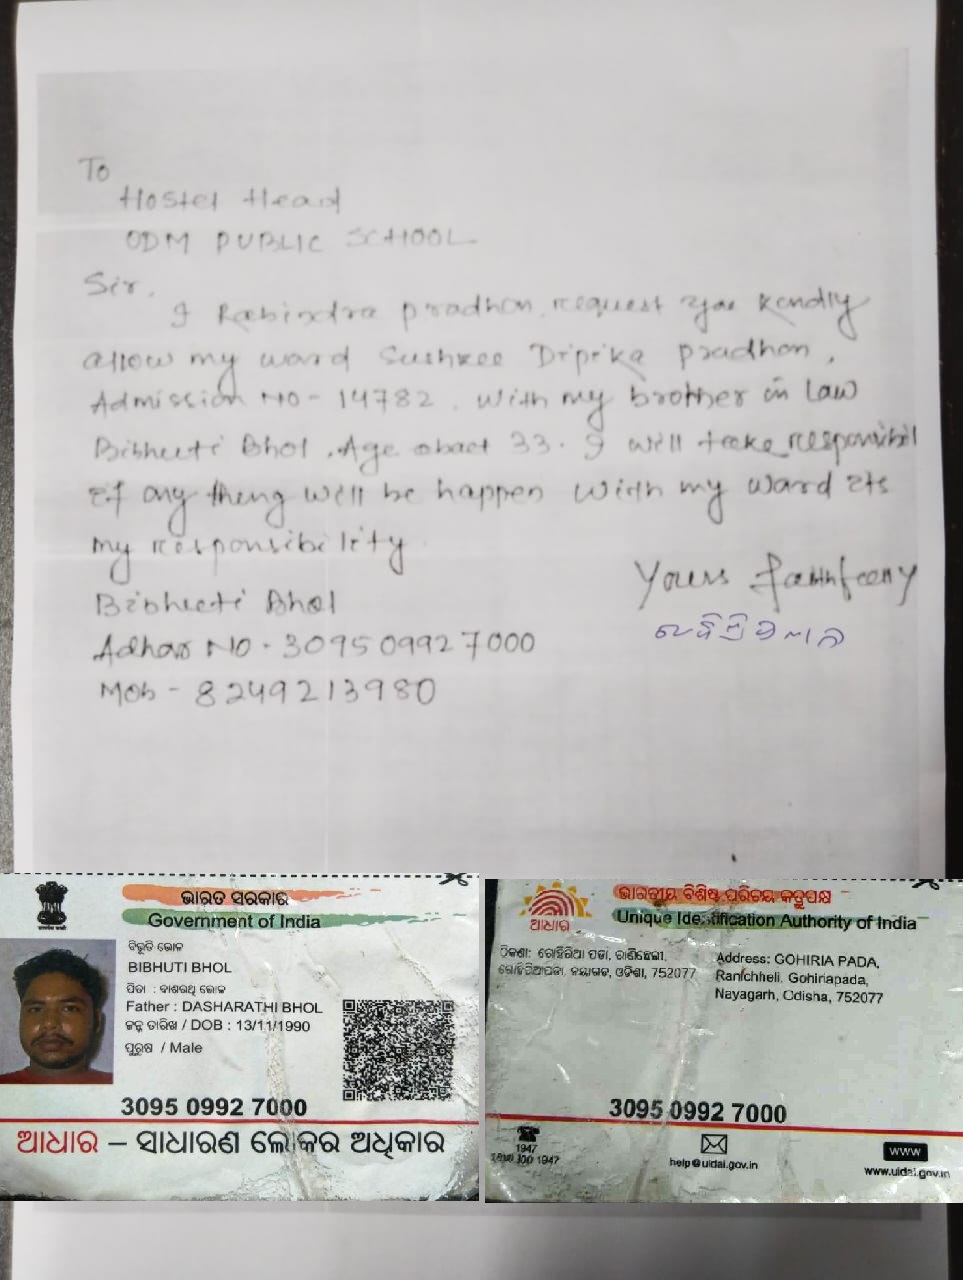 To
Hostel Head
ODM PUBLIC SCHOOL
Sir,
I Rabindra pradhan, request you kendly
allow my ward Sushree Dipika pradhan,
Admission NO - 14782. With my brother in Law
Bibhuti Bhol. Age about 33. I will take responsibil
If any thing will be happen With my Ward its
my responsibility
Yours
Bibhuti Bhol
Adhar NO - 309509927000
Mob - 8249213980
ଭାରତ ସରକାର
Government of India
ବିଭୂତି ଭୋଳ
BIBHUTI BHOL
ପିତା : ଦାଶରଥି ଭୋଳ
Father : DASHARATHI BHOL
ଜନ୍ମ ତାରିଖ / DOB : 13/11/1990
ପୁରୁଷ / Male
3095 0992 7000
ଆଧାର – ସାଧାରଣ ଲୋକର ଅଧିକାର
ଆଧାର
ଭାରତୀୟ ବିଶିଷ୍ଟ ପରିଚୟ
Unique Identification Authority of India
ଠିକଣା:
ନୟାଗଡ, ଓଡିଶା, 752077
Address: GOHIRIA PADA,
Ranichheli, Gohiriapada,
Nayagarh, Odisha, 752077
3095 0992 7000
1947
1947
help@uidai.gov.in
www
www.uidai.gov.in